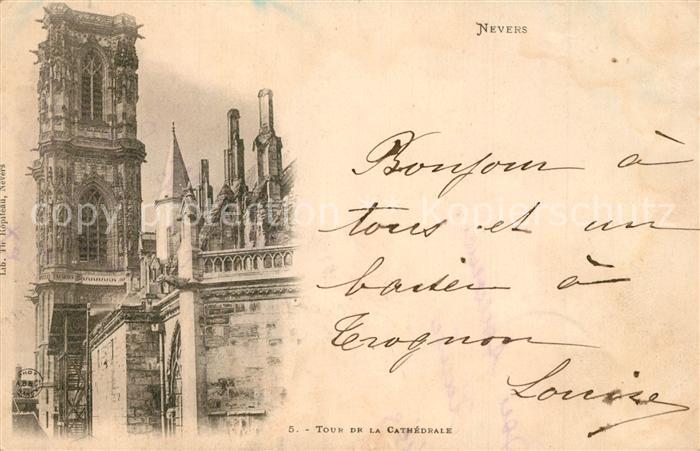 Nevers
Bonjour à
tous et un
baiser à
Trognon
Louise
5. - Tour de la Cathédrale
Lib. Th. Ropiteau, Nevers
copyright Kopierschutz